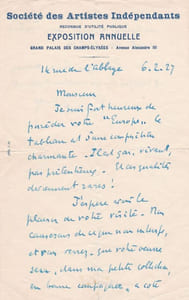 Société des Artistes Indépendants
RECONNUE D'UTILITÉ PUBLIQUE
EXPOSITION ANNUELLE
GRAND PALAIS DES CHAMPS-ÉLYSÉES - Avenue Alexandre III
14 rue de l'abbaye 6.2.27
Monsieur
Je suis fort heureux de
posséder votre "Europe". Le
tableau est sans
charmante. Il est gai, vivant,
pas prétentieux. Ces qualités
deviennent rares !
J'espère avoir le
plaisir de votre visite. Nous
causerons de ce qui nous intéresse,
et vous verrez que votre œuvre
sera, dans ma petite collection,
en bonne compagnie, à côté